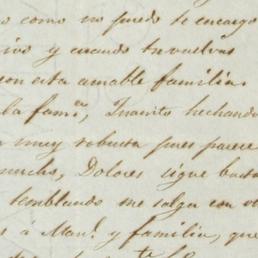 como no puedo te encargo
vivo y cuando te vuelvas
con esta amable familia.
la famª, Juanito hechando
muy robusta pues parece
mucho, Dolores sigue basta
temblando me salga con
á Manl. y familia, que